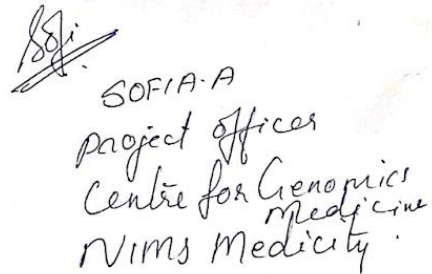 Sofi.
SOFIA·A
Project Officer
Centre for Genomics
Medicine
NIMS Medicity.